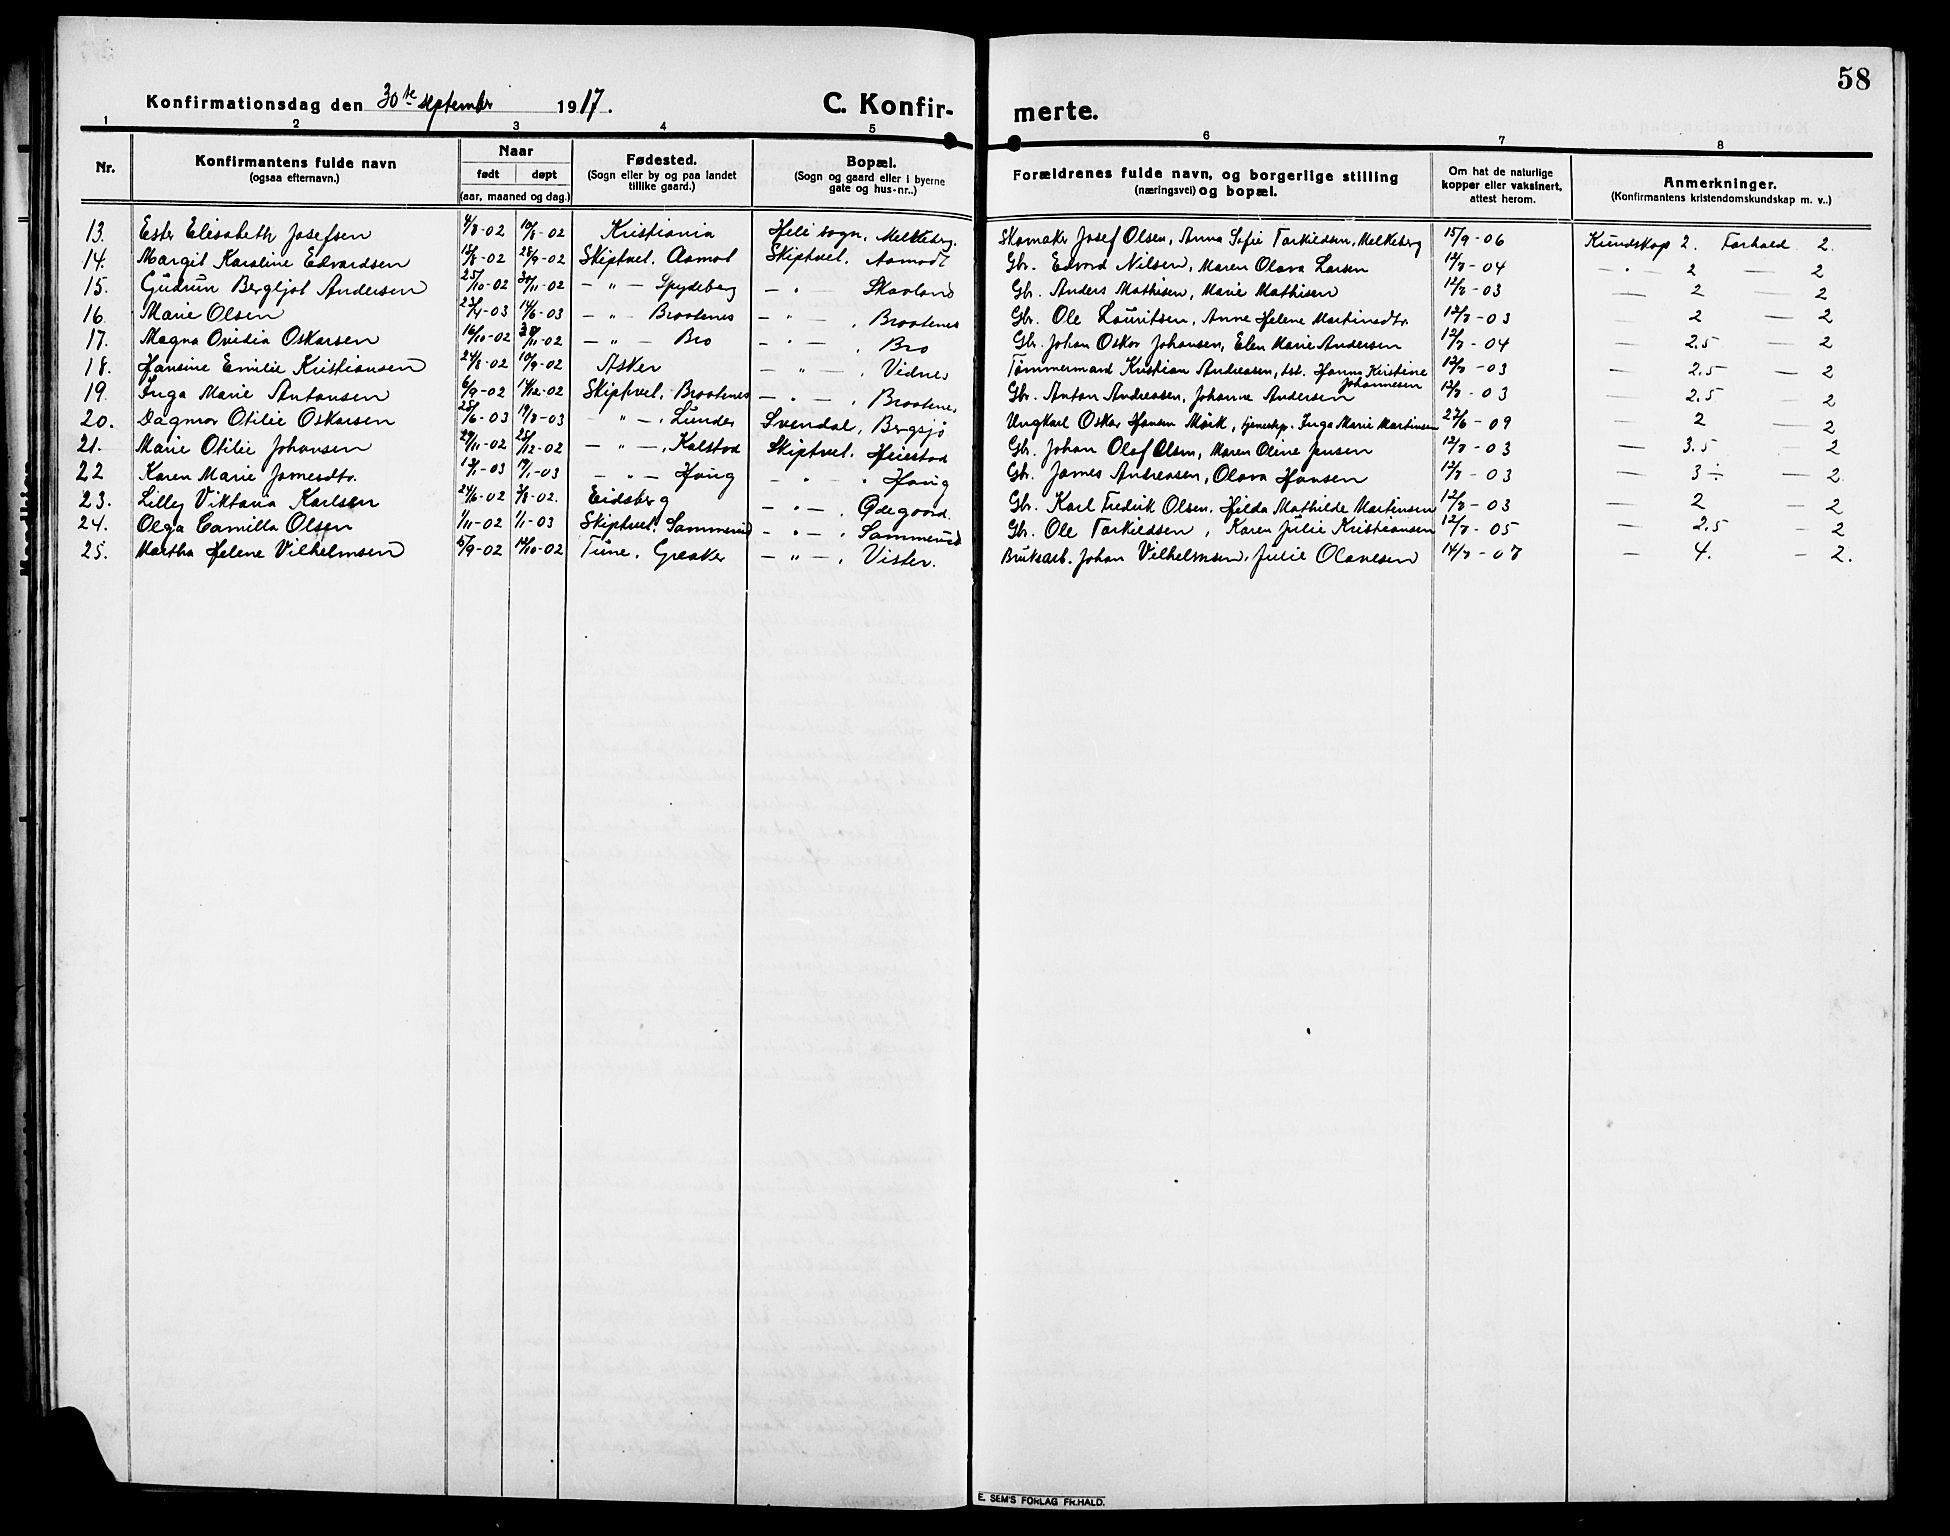 58
Konfirmationsdag den 30te september 1917. C. Konfir- merte.
1 2 3 4 5 6 7 8
Nr. Konfirmantens fulde navn (ogsaa efternavn.) Naar født døpt (aar, maaned og dag.) Fødested. (Sogn eller by og paa landet tillike gaard.) Bopæl. (Sogn og gaard eller i byerne gate og hus-nr..) Forældrenes fulde navn, og borgerlige stilling (næringsvei) og bopæl. Om hat de naturlige kopper eller vaksinert, attest herom. Anmerkninger. (Konfirmantens kristendomskundskap m. v..)
13. Ester Elisabeth Josefsen 4/8-02 10/8-02 Kristiania Heli sogn, Melkeberg. Skomaker Josef Olsen, Anna Sofie Torkildsen, Melkeberg 15/9-06 Kundskap 2. Forhold 2.
14. Margit Karoline Edvardsen 12/8-02 28/9-02 Skiptvet. Aamot Skiptvet. Aamodt Gbr. Edvard Nilsen, Maren Olava Larsen 12/8-04 — " — 2 — 2
15. Gudrun Bergljot Andersen 25/10-02 30/11-02 — " — Spydeberg — " — Skavland Gbr. Anders Mathisen, Marie Mathisen 12/8-03 — 2 — 2
16. Marie Olsen 23/4-03 14/6-03 — " — Braatenes — " — , Braatenes Gbr. Ole Lauritsen, Anne Helene Martinsdtr. 12/8-03 — 2 — 2
17. Magna Ovidia Oskarsen 16/10-02 30/11-02 — " — Bro — " — , Bro Gbr. Johan Oskar Johansen, Elen Marie Andersen 12/8-04 — 2.5 — 2
18. Hansine Emilie Kristiansen 24/8-02 10/9-02 Asker — " — , Vidnes Tømmermand Kristian Andreasen, Hanna Kristine Johannesen 12/8-03 — 2.5 — 2
19. Inga Marie Antonsen 6/9-02 14/12-02 Skiptvet, Braatenes — " — , Braatenes Gbr. Anton Andreasen, Johanne Andersen 12/8-03 — 2.5 — 2
20. Dagmar Otilie Oskarsen 25/6-03 19/8-03 — " — , Lunder Svendal, Bergsjø Ungkarl Oskar Hansen Mørk, tjenestep. Inga Marie Martinsen 27/6-09 — 2 — 2
21. Marie Otilie Johansen 27/11-02 25/12-02 — " — , Kalstad Skiptvet. Heiestad Gbr. Johan Olaf Olsen, Maren Oline Jensen 12/8-03 — 3.5 — 2
22 Karen Marie Jamesdtr. 19/1-03 — " — Haug — " — , Haug Gbr. James Andreasen, Olava Hansen 12/8-03 — 3 ÷ — 2
23. Lilly Viktoria Karlsen 24/6-02 3/8-02. Eidsberg — " — , Ødegaard. Gbr. Karl Fredrik Olsen. Hilda Mathilde Martinsen 12/8-03 — 2 — 2
24. Olga Camilla Olsen 1/11-02 1/1-03 Skiptvet. Sammerud — " — , Sammerud Gbr. Ole Torkildsen, Karen Julie Kristiansen 12/8-05 — 2.5 — 2
25. Martha Helene Vilhelmsen 5/9-02 14/10-02 Tune, Greaker — " — , Vister. Bruksarb. Johan Vilhelmsen, Julie Olavesen 14/8-07 — 4. — 2.
E. SEM'S FORLAG FR.HALD.